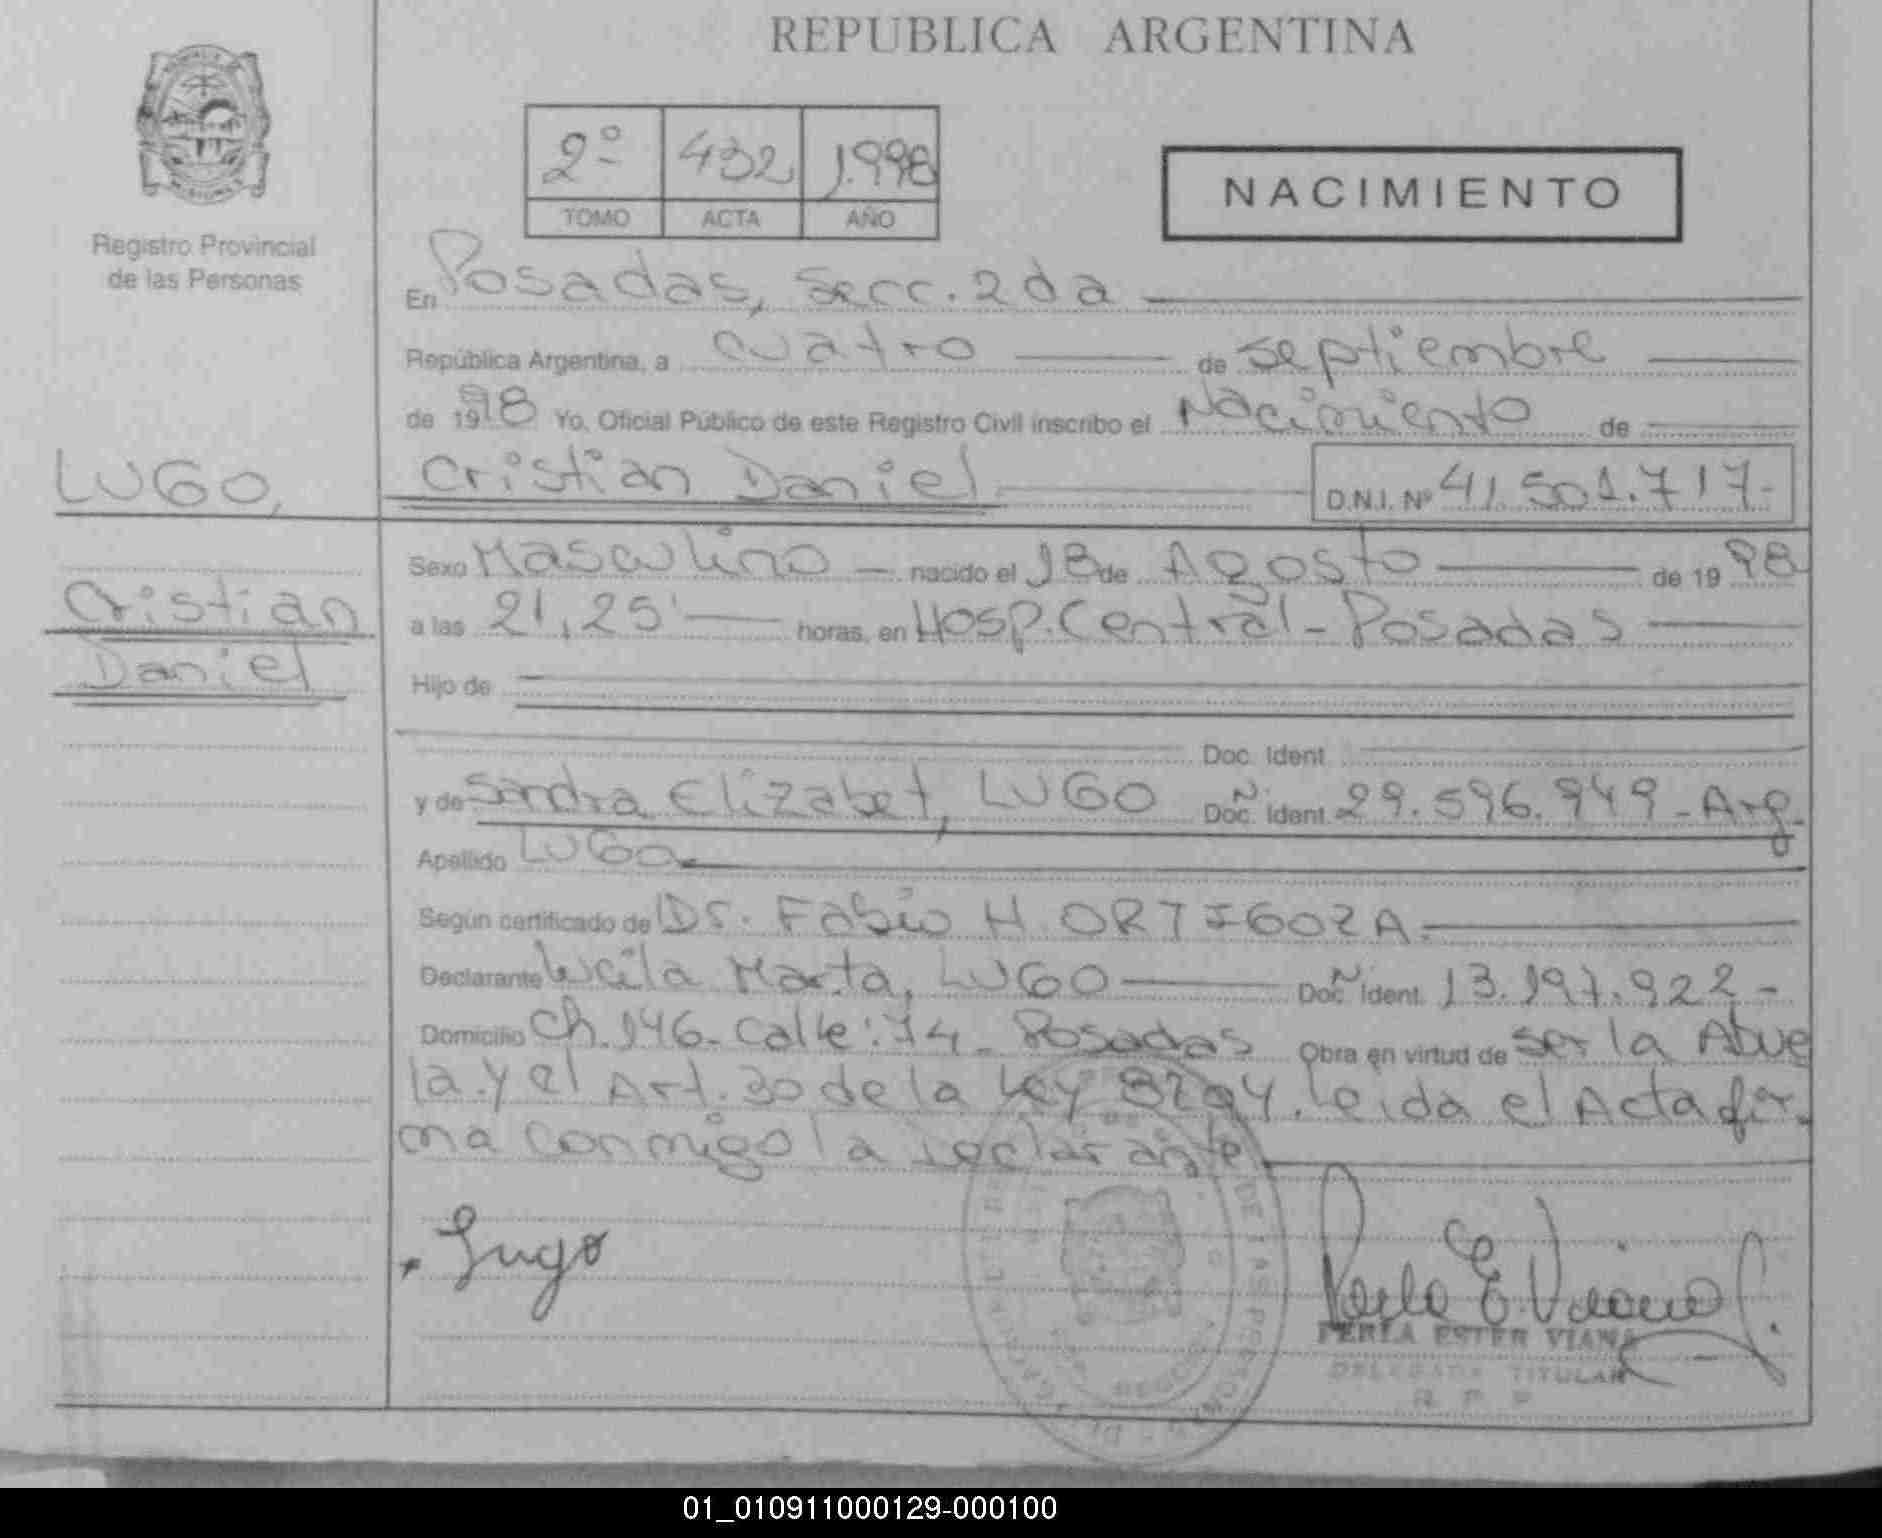 REPUBLICA ARGENTINA
2º 432 1.998
TOMO ACTA AÑO
NACIMIENTO
Registro Provincial
de las Personas
En Posadas, Secc. 2da
República Argentina, a cuatro de septiembre
de 1998 Yo, Oficial Público de este Registro Civil inscribo el Nacimiento de
LUGO, Cristian Daniel D.N.I. Nº 41.501.717-
Sexo Masculino nacido el 18 de Agosto de 1998
Cristian
a las 21,25' horas, en Hosp. Central - Posadas
Daniel
Hijo de
Doc. Ident.
y de Sandra Elizabet, LUGO Doc. Ident. 29.596.949 - Arg.
Apellido LUGO
Según certificado de Dr. Fabio H. ORTIGOZA.
Declarante Marta, LUGO Doc. Ident. 13.197.922 -
Domicilio Ch. 146 - Calle: 74 - Posadas Obra en virtud de ser la Abue
la y el Art. 30 de la Ley 8204. Leida el Acta fir-
ma conmigo la declarante
Lugo
DE LAS PERSONAS
PERLA ESTER VIANA
DELEGADA TITULAR
R P P
01_010911000129-000100